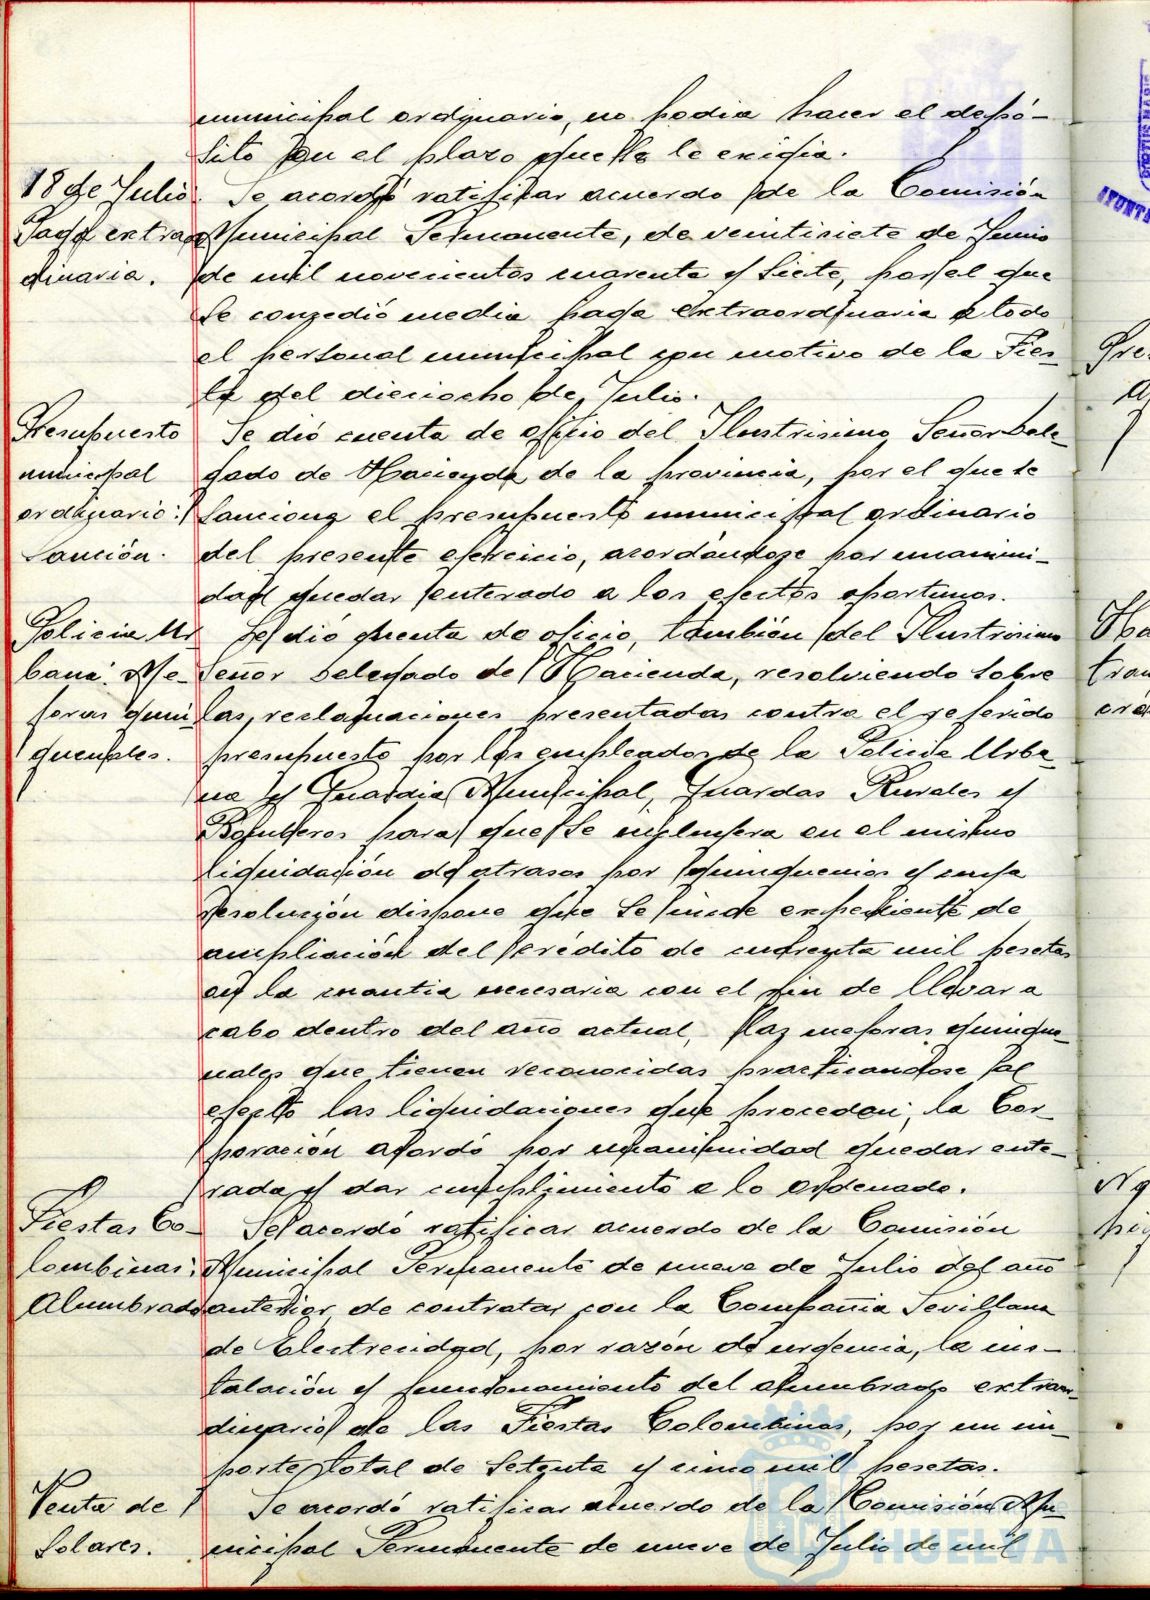 municipal ordinario, no podia hacer el depó-
sito en el plazo que se le exigia.
18 de Julio
Paga extraor
dinaria.
Se acordó ratificar acuerdo de la Comisión
Municipal Permanente, de veintisiete de Junio
de mil novecientos cuarenta y siete, por el que
se concedió media paga extraordinaria a todo
el personal municipal con motivo de la Fies-
ta del dieciocho de Julio.
Presupuesto
municipal
ordinario:
Sanción.
Se dió cuenta de oficio del Ilustrisimo Señor Dele-
gado de Hacienda de la provincia, por el que se
sanciona el presupuesto municipal ordinario
del presente ejercicio, acordándose por unanimi-
dad quedar enterado a los efectos oportunos.
Policia Ur
bana: Me-
joras quin
quenales.
Se dió cuenta de oficio, también del Ilustrisimo
Señor Delegado de Hacienda, resolviendo sobre
las reclamaciones presentadas contra el referido
presupuesto por los empleados de la Policia Urba-
na y Guardia Municipal, Guardas Rurales y
Bomberos para que se incluyera en el mismo
liquidación de atrasos por quinquenios y cuya
resolución dispone que se inicie expediente de
ampliación del crédito de cuarenta mil pesetas
en la cuantia necesaria con el fin de llevar a
cabo dentro del año actual, las mejoras quinque-
nales que tienen reconocidas practicandose al
efecto las liquidaciones que procedan; la Cor-
poración acordó por unanimidad quedar ente-
rada y dar cumplimiento a lo ordenado.
Fiestas Co-
lombinas:
Alumbrado
Se acordó ratificar acuerdo de la Comisión
Municipal Permanente de nueve de Julio del año
anterior de contratar con la Compañia Sevillana
de Electrecidad, por razón de urgencia, la ins-
talación y funcionamiento del alumbrado extraor-
dinario de las Fiestas Colombinas, por un im-
porte total de setenta y cinco mil pesetas.
Venta de
Solares.
Se acordó ratificar acuerdo de la Comisión Mu-
nicipal Permanente de nueve de Julio de mil
HUELVA